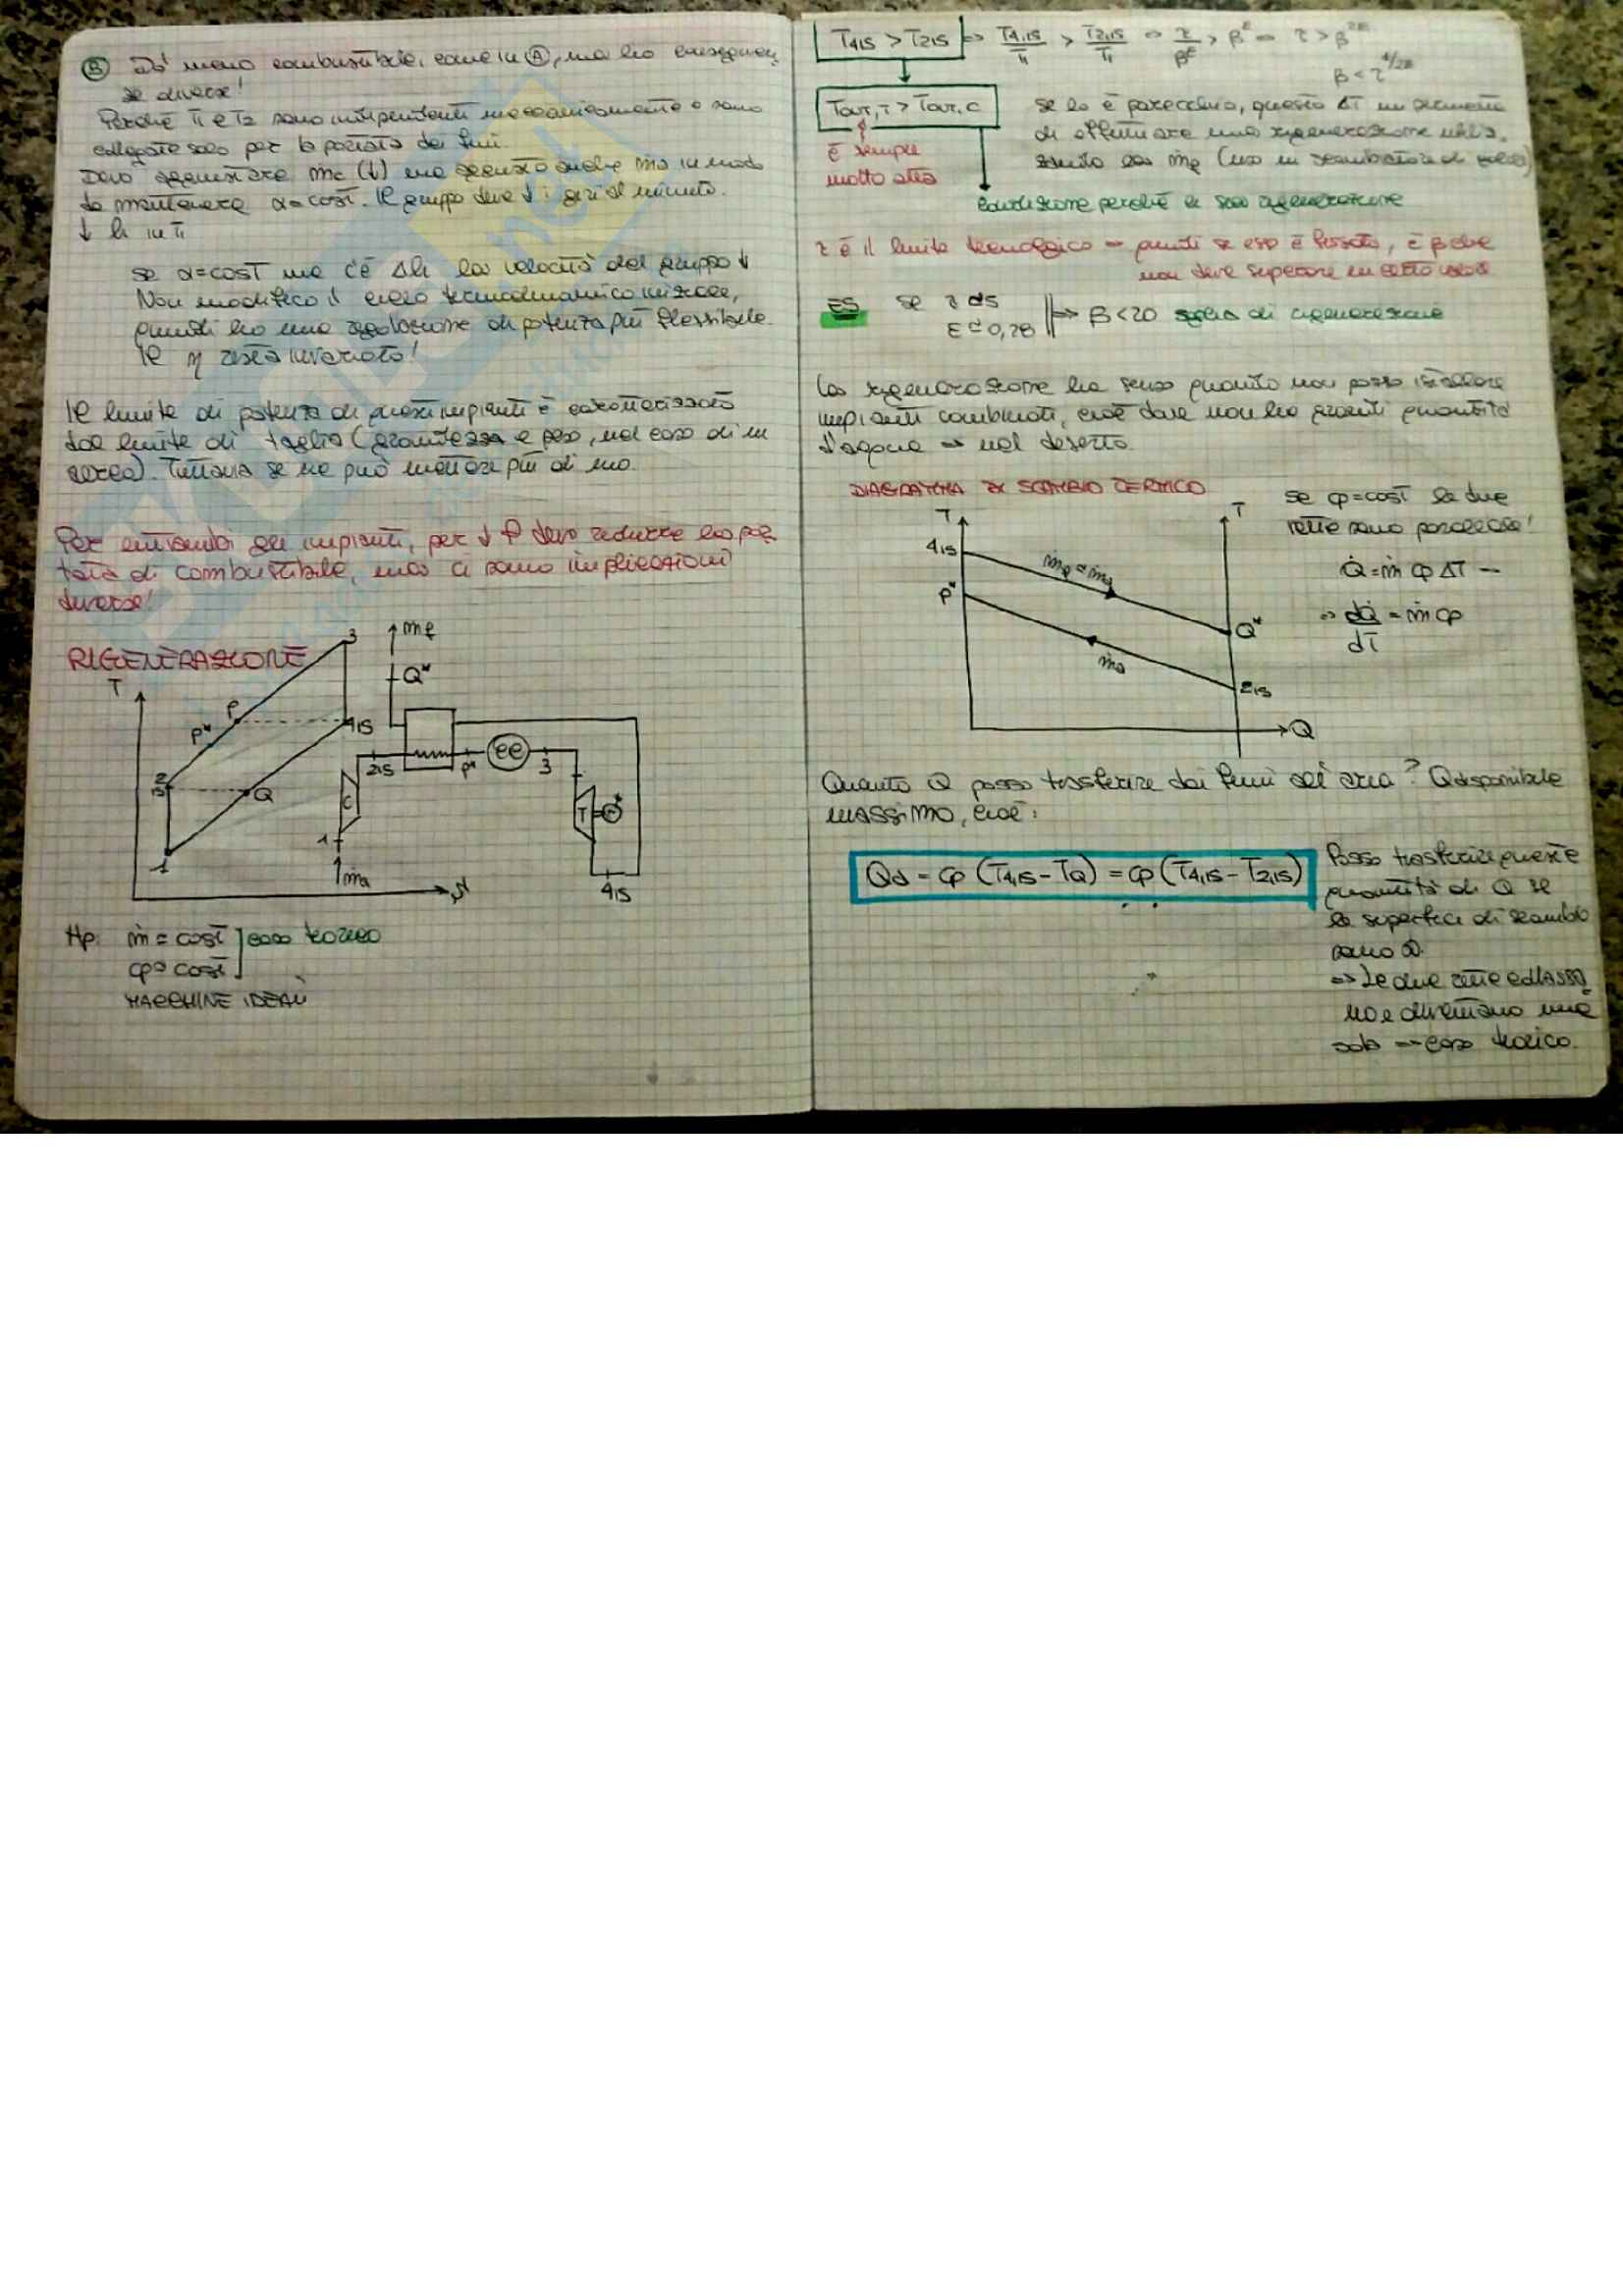 B Dò meno combustibile, come in A, ma ho conseguen
ze diverse!
Perché T1 e T2 sono indipendenti meccanicamente e sono
collegate solo per la portata dei fumi.
Devo aggiustare ṁc (↓) ma aggiusto anche ṁa in modo
da mantenere α=cost. Il gruppo deve ↓ i giri al minuto.
↓ h in T1
se α=cost ma c'è Δh la velocità del gruppo ↓
Non modifico il ciclo termodinamico iniziale,
quindi ho una regolazione di potenza più flessibile.
Il η resta invariato!
Il limite di potenza di questi impianti è caratterizzato
dal limite di taglia (grandezza e peso, nel caso di un
aereo). Tuttavia se ne può mettere più di uno.
Per entrambi gli impianti, per ↓ P devo ridurre la por
tata di combustibile, ma ci sono implicazioni
diverse!
RIGENERAZIONE
T
3
P
P*
4is
2
is
Q
1
S
ṁf
Q*
2is
P*
CC
3
C
T
1
ṁa
4is
Hp: ṁ = cost ] caso teorico
cp = cost
MACCHINE IDEALI
T4is > T2is ⇔ T4,is/T1 > T2,is/T1 ⇔ τ/β^ε > β^ε ⇒ τ > β^2ε
β < τ^1/2ε
Tout,T > Tout,C
è sempre
molto alta
se lo è parecchio, questo ΔT mi permette
di effettuare una rigenerazione utile.
(uso un scambiatore di calore)
condizione perché ci sia rigenerazione
τ è il limite tecnologico → quindi se esso è fissato, è β che
non deve superare un certo valore
ES se τ ≅ 5
ε ≅ 0,28
⇒ β < 20 soglia di rigenerazione
La rigenerazione ha senso quando non posso installare
impianti combinati, cioè dove non ho grandi quantità
d'acqua ⇒ nel deserto.
DIAGRAMMA DI SCAMBIO TERMICO
T
T
4is
P*
ṁf ≅ ṁa
ṁa
Q*
2is
Q
se cp=cost le due
rette sono parallele!
Q̇ = ṁ cp ΔT →
⇒ dQ̇/dT = ṁ cp
Quanto Q posso trasferire dai fumi all'aria? Q disponibile
MASSIMO, cioè:
Qd = cp (T4,is - TQ) = cp (T4,is - T2,is)
Posso trasferire questa
quantità di Q se
le superfici di scambio
sono ∞.
⇒ Le due rette collassa
no e diventano una
sola ⇒ caso teorico.